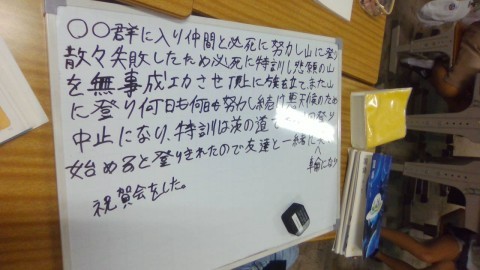 〇〇群に入り仲間と必死に努力し山に登り
散々失敗したため必死に特訓し悲願の山
を無事成功させ頂上に旗を立てまた山
に登り何日も何日も努力し結局悪天候のため
中止になり、特訓は茨の道で
始めると登りきれたので友達と一緒に
輪になり
祝賀会をした。